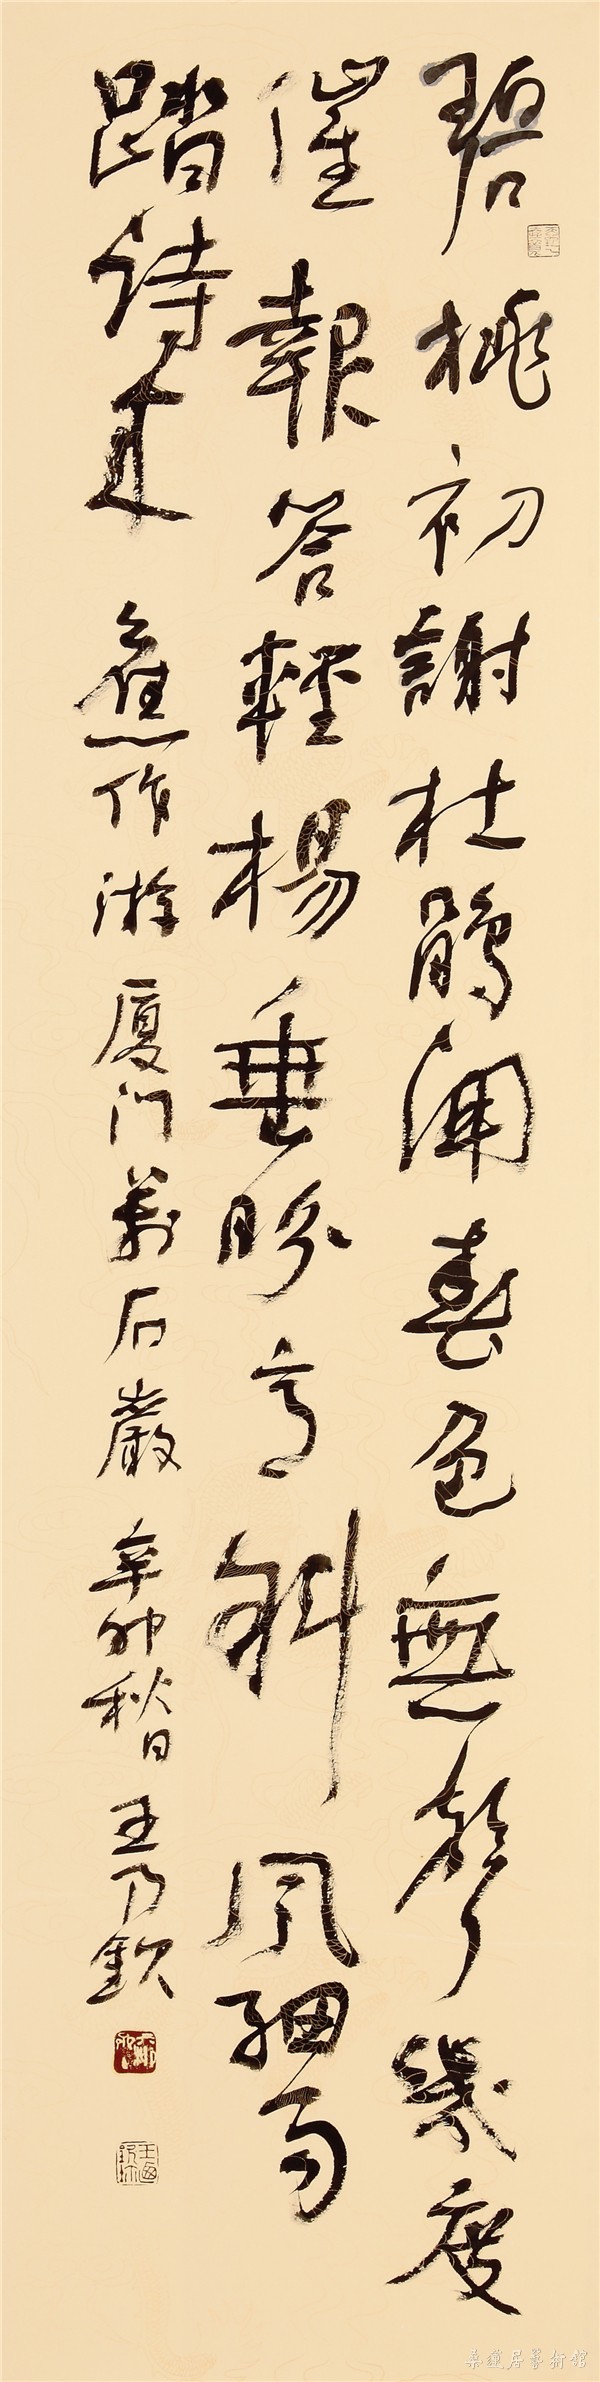 碧桃初謝杜鵑開春色無聲幾度
催報答輕楊垂盼意斜風細雨
踏詩來 舊作游廈门萬石巖 辛卯秋日 王乃欽
桑蓮居藝術館